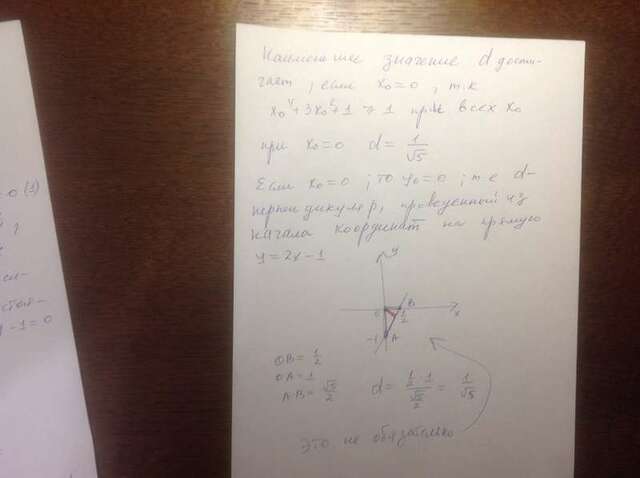 = 0 (3)
Наименьшее значение d дости-
гает, если x₀=0, т.к
x₀⁴+3x₀²+1 ⩾ 1 при всех x₀
при x₀=0 d= 1/√5
Если x₀=0, то y₀=0, т.е d-
перпендикуляр, проведенный из
начала координат на прямую
y=2x-1
-1=0
y
0 B
1/2 x
-1 A
OB= 1/2
OA=1
AB= √5/2
d= (1/2·1)/(√5/2) = 1/√5
это не обязательно